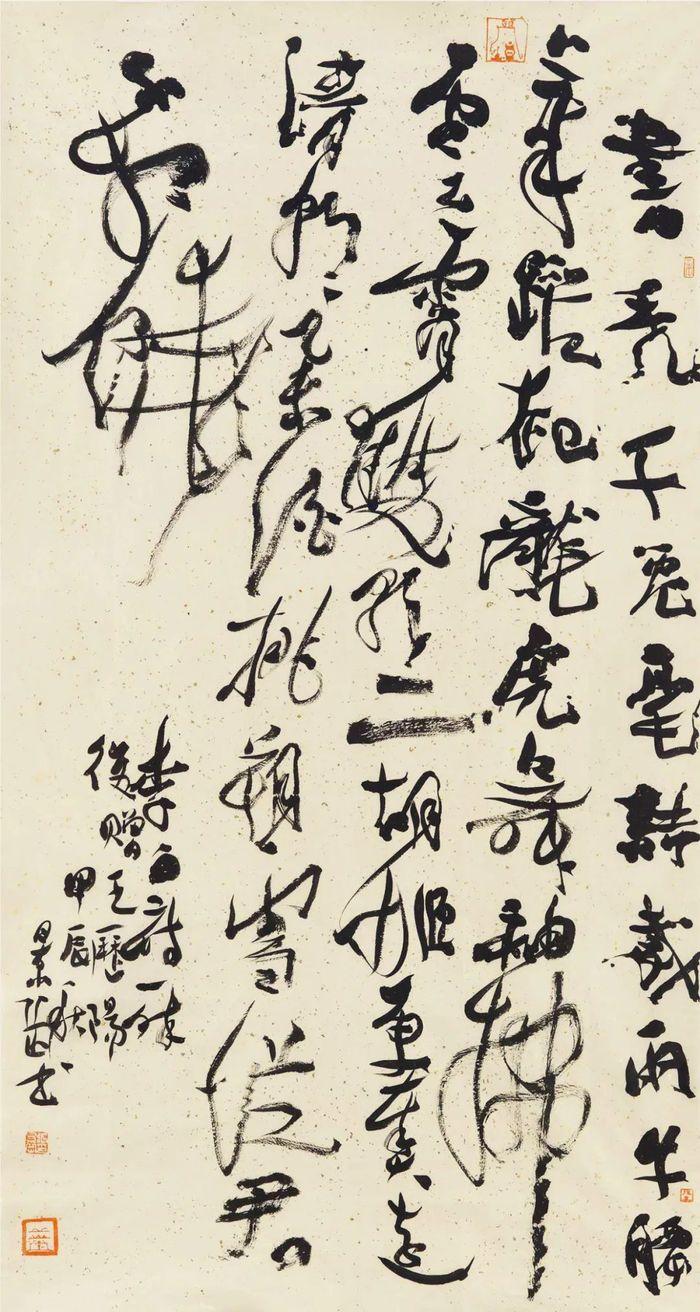 書禿千兔毫詩裁兩牛腰
筆蹤起龍虎舞袖拂
雲霄雙歌二胡姬更奏遠
清朝舉酒挑朔雪從君
不相饒
李白詩醉
後贈王歷陽
甲辰秋
景書